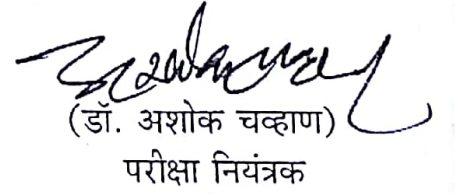 (डॉ. अशोक चव्हाण)
परीक्षा नियंत्रक